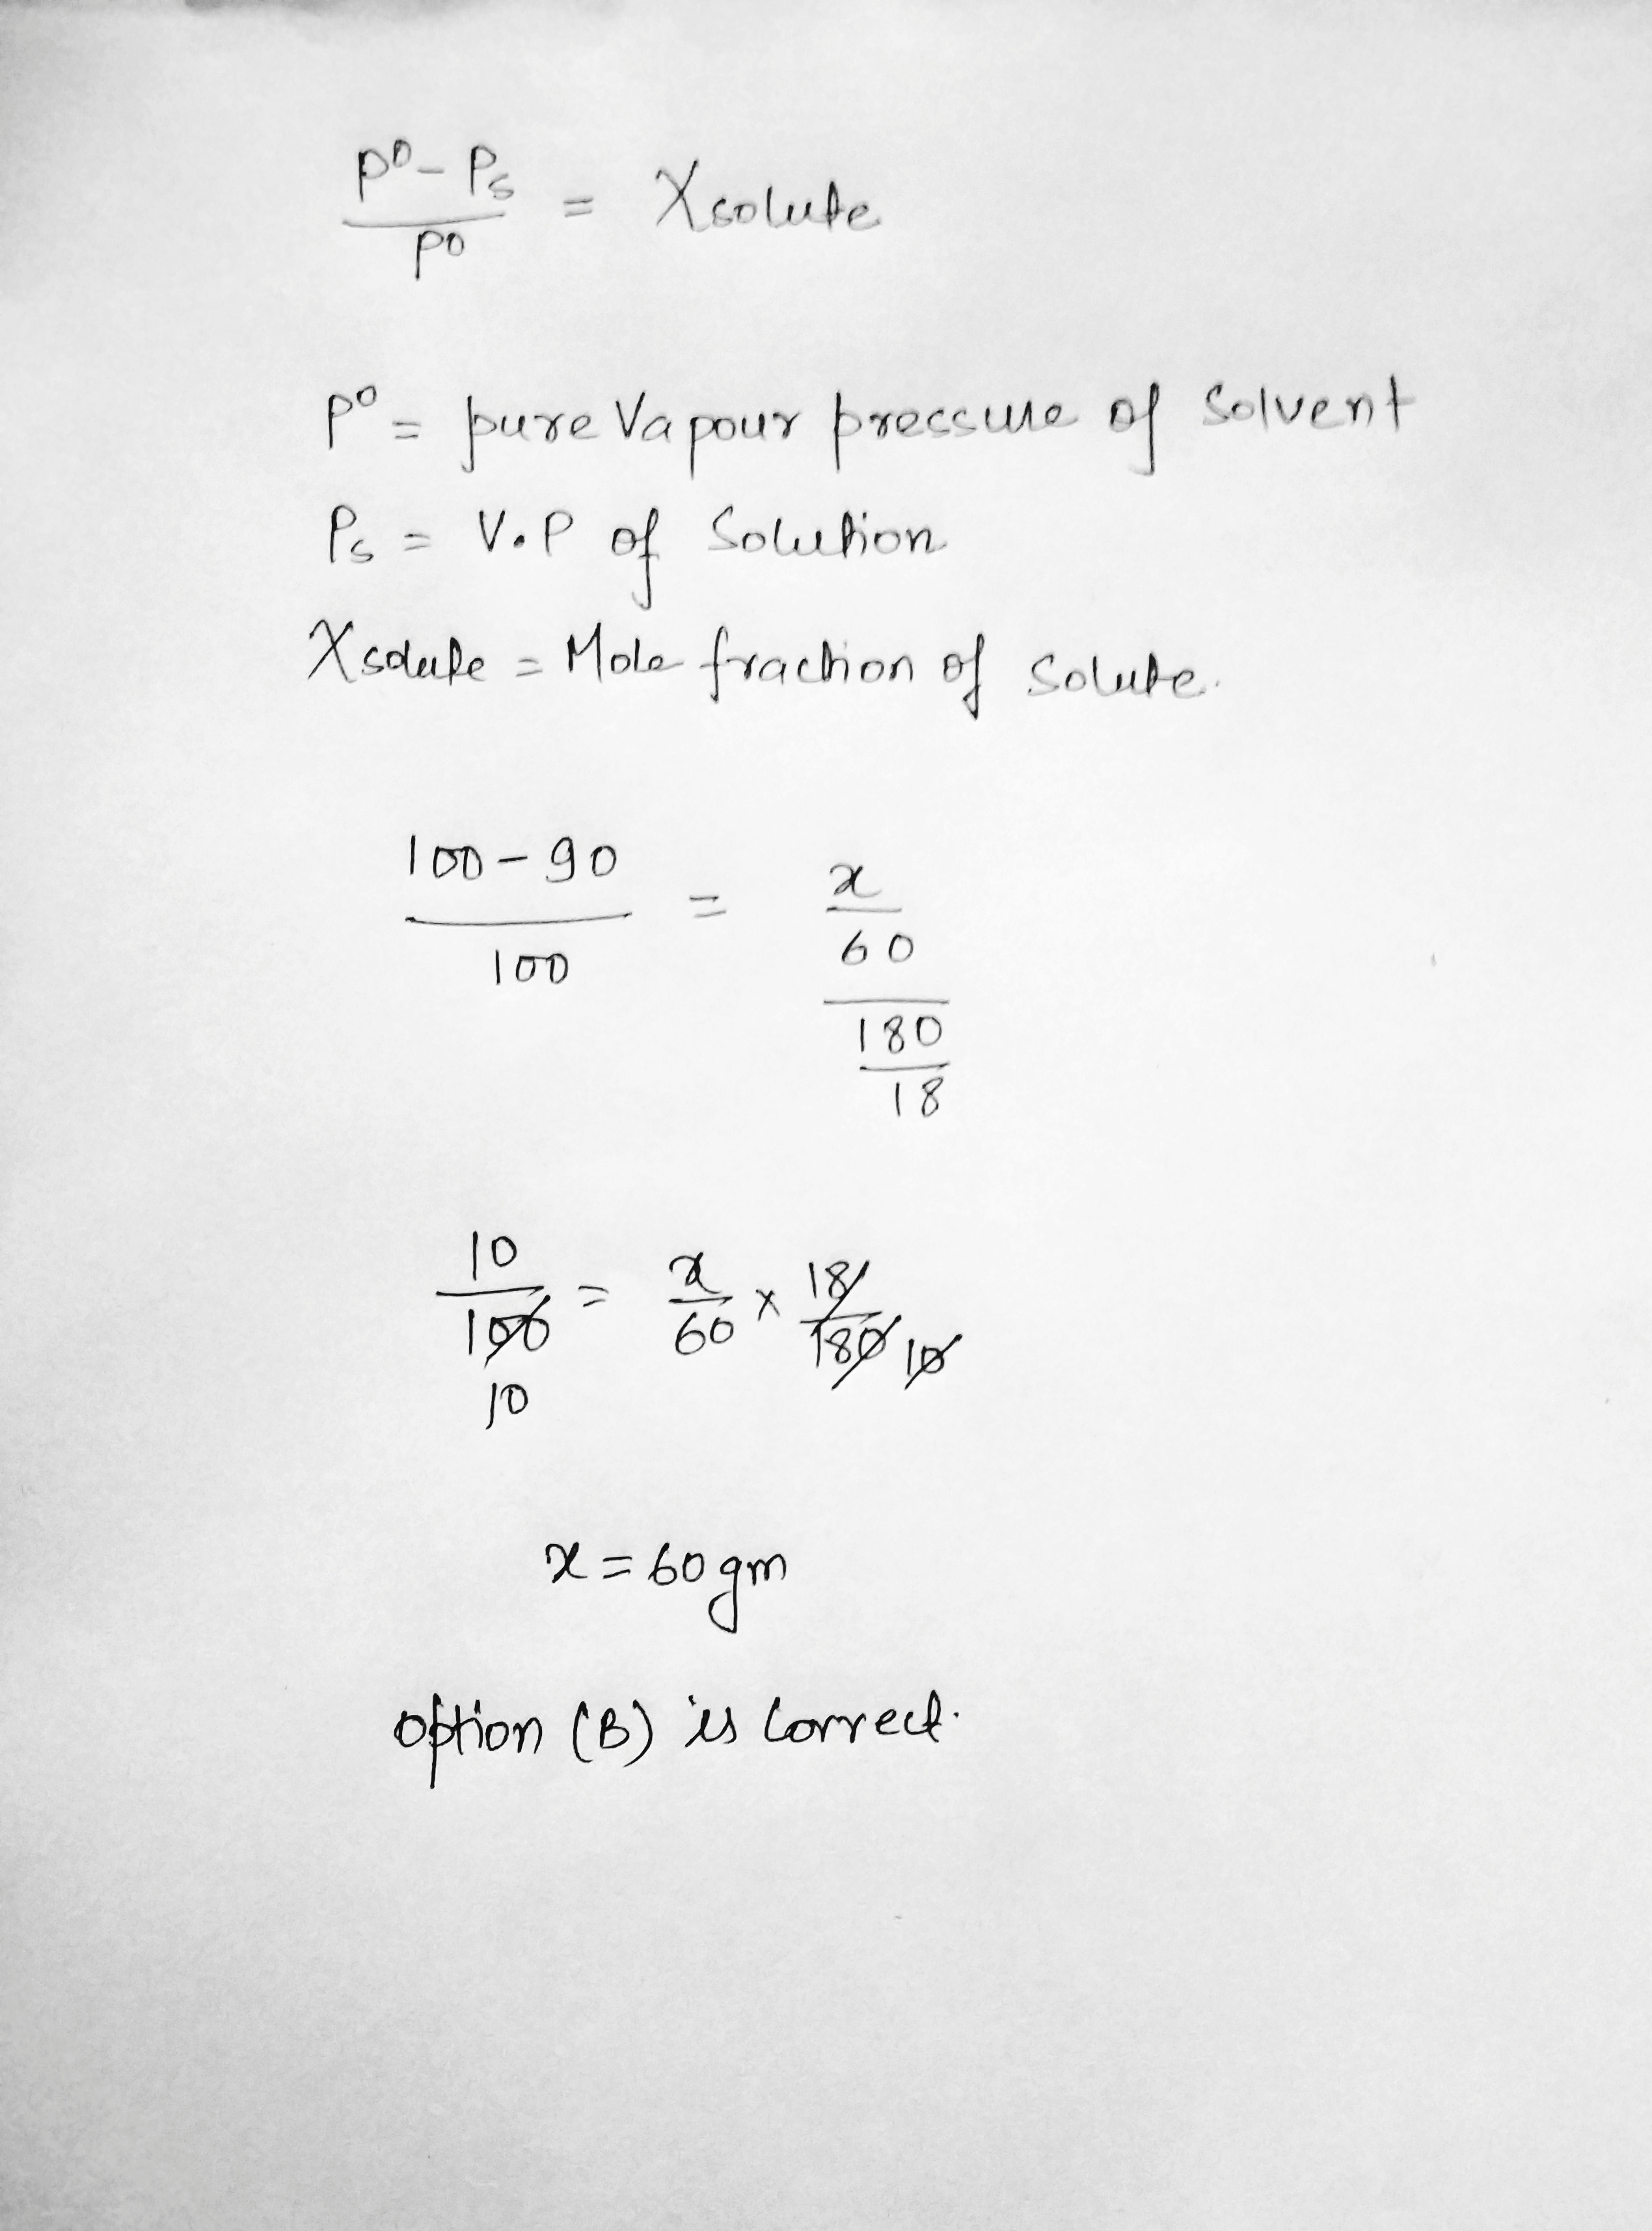 P⁰ - Ps / P⁰ = Xsolute
P⁰ = pure Vapour pressure of Solvent
Ps = V.P of Solution
Xsolute = Mole fraction of Solute.
100 - 90 / 100 = x / 60 / 180 / 18
10 / 100 10 = x / 60 × 18 / 180 10
x = 60 gm
option (B) is correct.